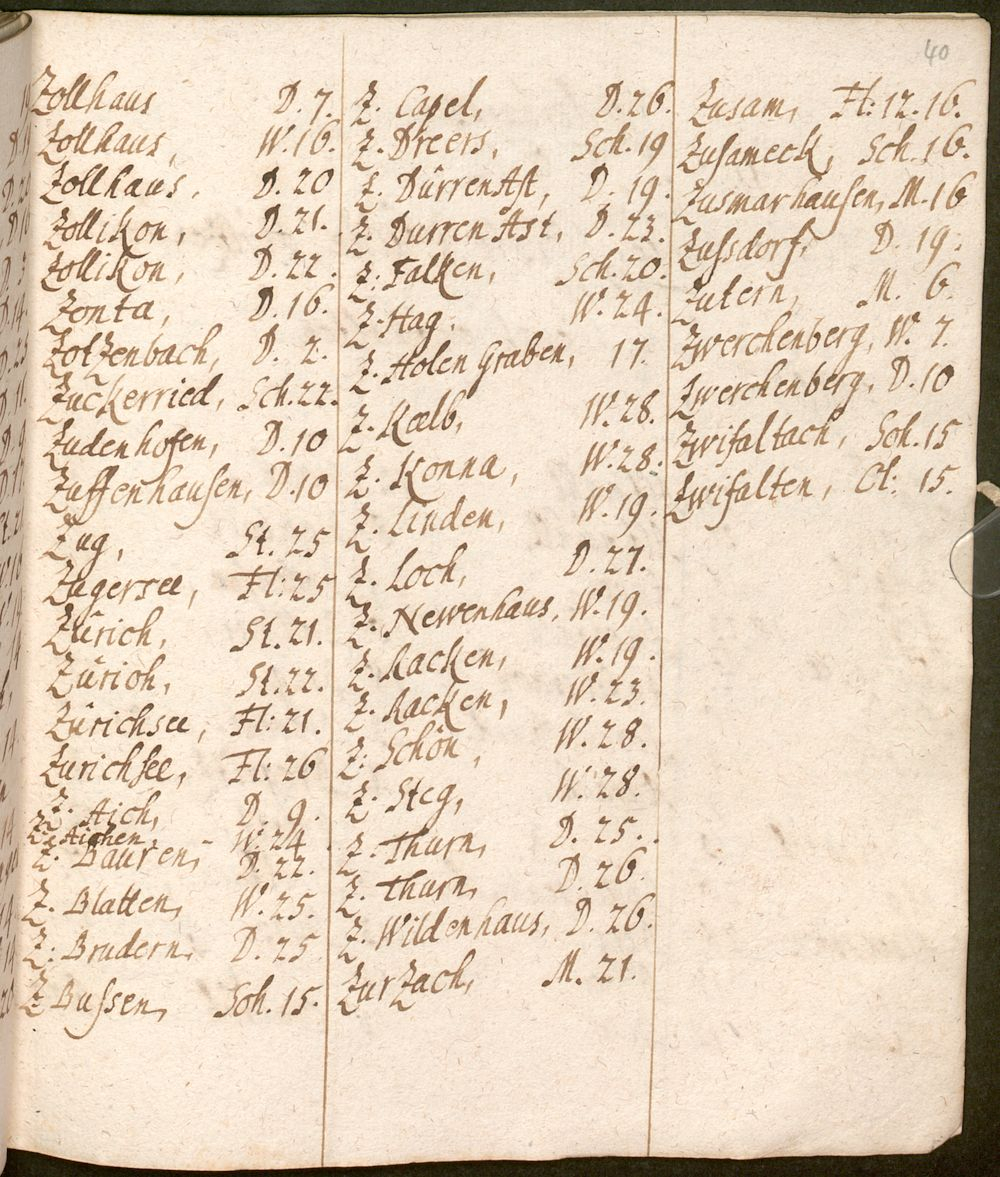 40
Zollhaus D. 7.
Zollhaus, W. 16.
Zollhaus. D. 20
Zollikon, D. 21.
Zollikon, D. 22.
Zonta, D. 16.
Zotzenbach, D. 2.
Zuckerried, Sch. 22.
Zudenhofen, D. 10
Zuffenhausen, D. 10
Zug, St. 25
Zugersee, Fl: 25
Zürich, St. 21.
Zürich, St. 22.
Zürichsee, Fl: 21.
Zurichsee, Fl: 26
Z. Aich, D. 9.
Z. Aichen, W. 24
Z. Bauren, D. 22.
Z. Blatten, W. 25.
Z. Brudern, D. 25
Z Bussen, Sch. 15.
Z. Capel, D. 26.
Z. Dreers, Sch. 19
Z. Dürren Ast, D. 19.
Z. Durren Ast, D. 23.
Z. Falken, Sch. 20.
Z. Hag. W. 24.
Z. Holen Graben, 17.
Z. Kalb, W. 28.
Z. Konna, W. 28.
Z. Linden, W. 19.
Z. Loch, D. 27.
Z. Newenhaus, W. 19.
Z. Racken, W. 19.
Z. Racken, W. 23.
Z. Schön, W. 28.
Z. Steg, W. 28.
Z. Thurn, D. 25.
Z. Thurn, D. 26.
Z. Wildenhaus, D. 26.
Zurzach, M. 21.
Zusam, Fl: 12. 16.
Zusameck, Sch. 16.
Zusmarhausen, M. 16
Zussdorf, D. 19.
Zutern, M. 6.
Zwerchenberg, W. 7.
Zwerchenberg, D. 10
Zwifaltach, Sch. 15
Zwifalten, Cl: 15.